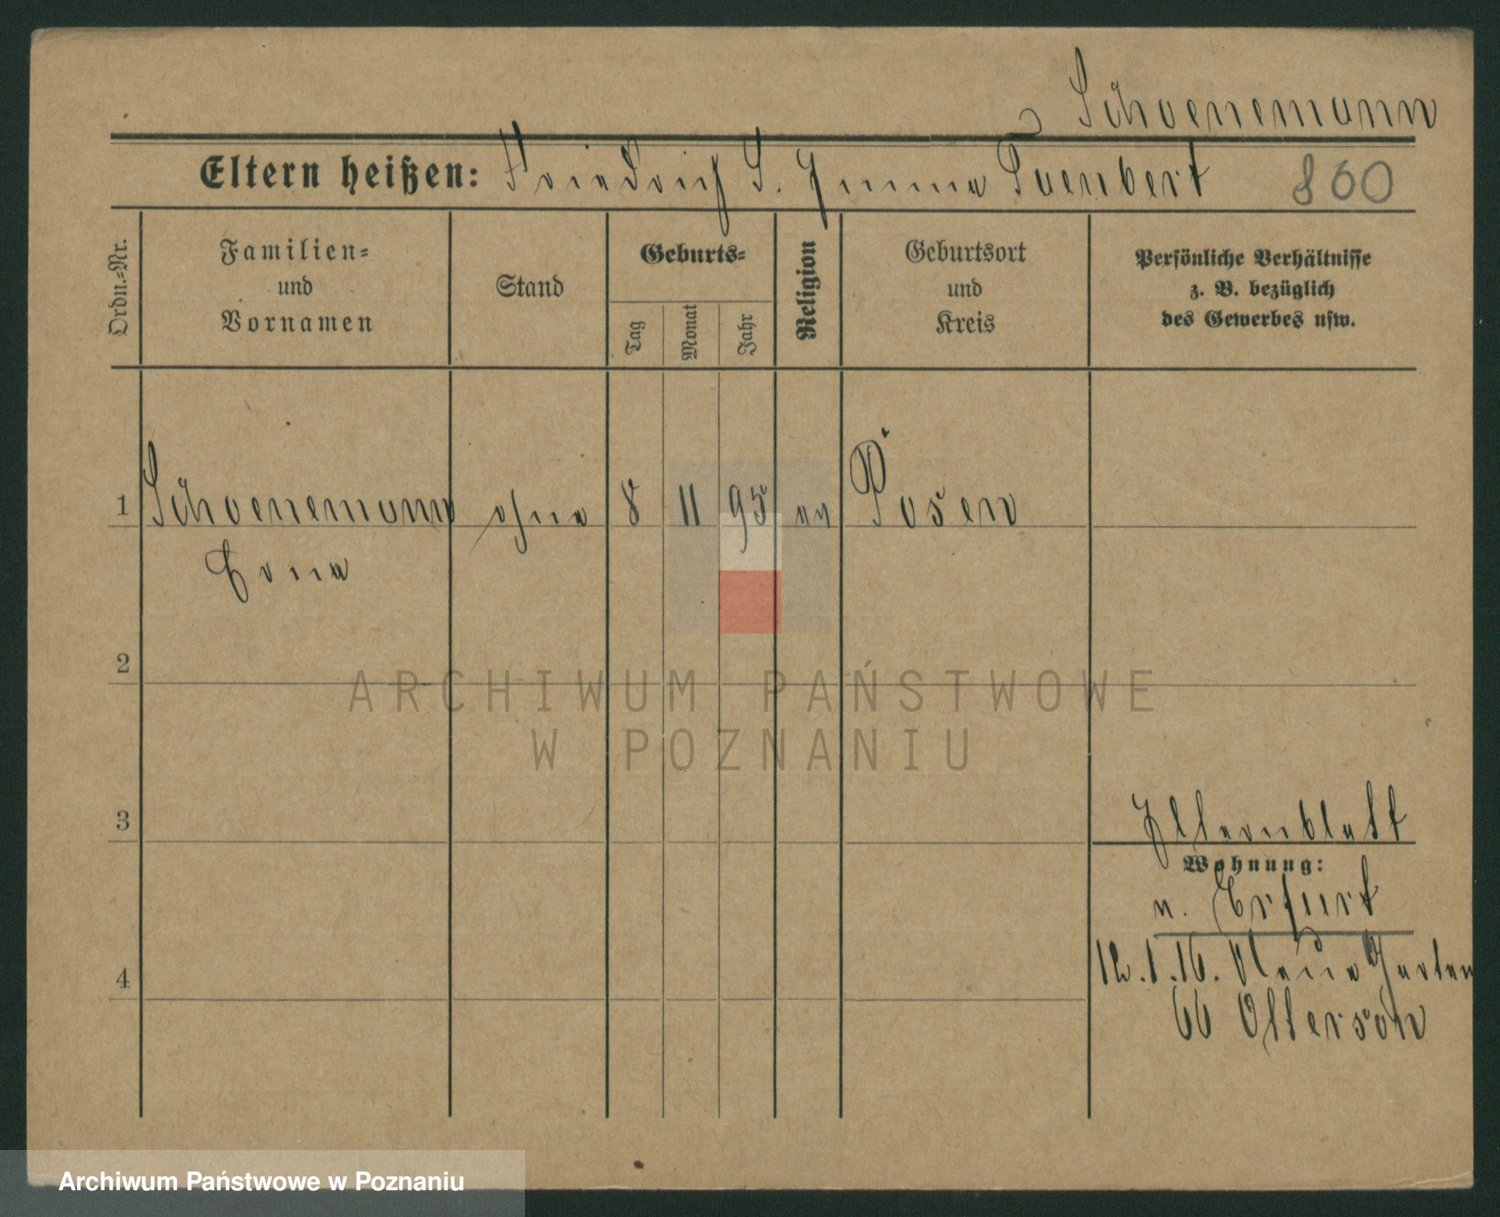 Schoenemann
Eltern heißen: Friedrich S. Emma Poenbert 860
Ordn.-Nr.
Familien- und Vornamen
Stand
Geburts-
Tag Monat Jahr
Religion
Geburtsort und Kreis
Persönliche Verhältnisse
z. B. bezüglich
des Gewerbes usw.
1 Schoenemann ohne 8 11 95 ev Posen
Erna
2
ARCHIWUM PAŃSTWOWE
W POZNANIU
3
Elternblatt
Wohnung:
n. Erfurt
12.1.16. Neue Garten
66 Otterson
4
Archiwum Państwowe w Poznaniu